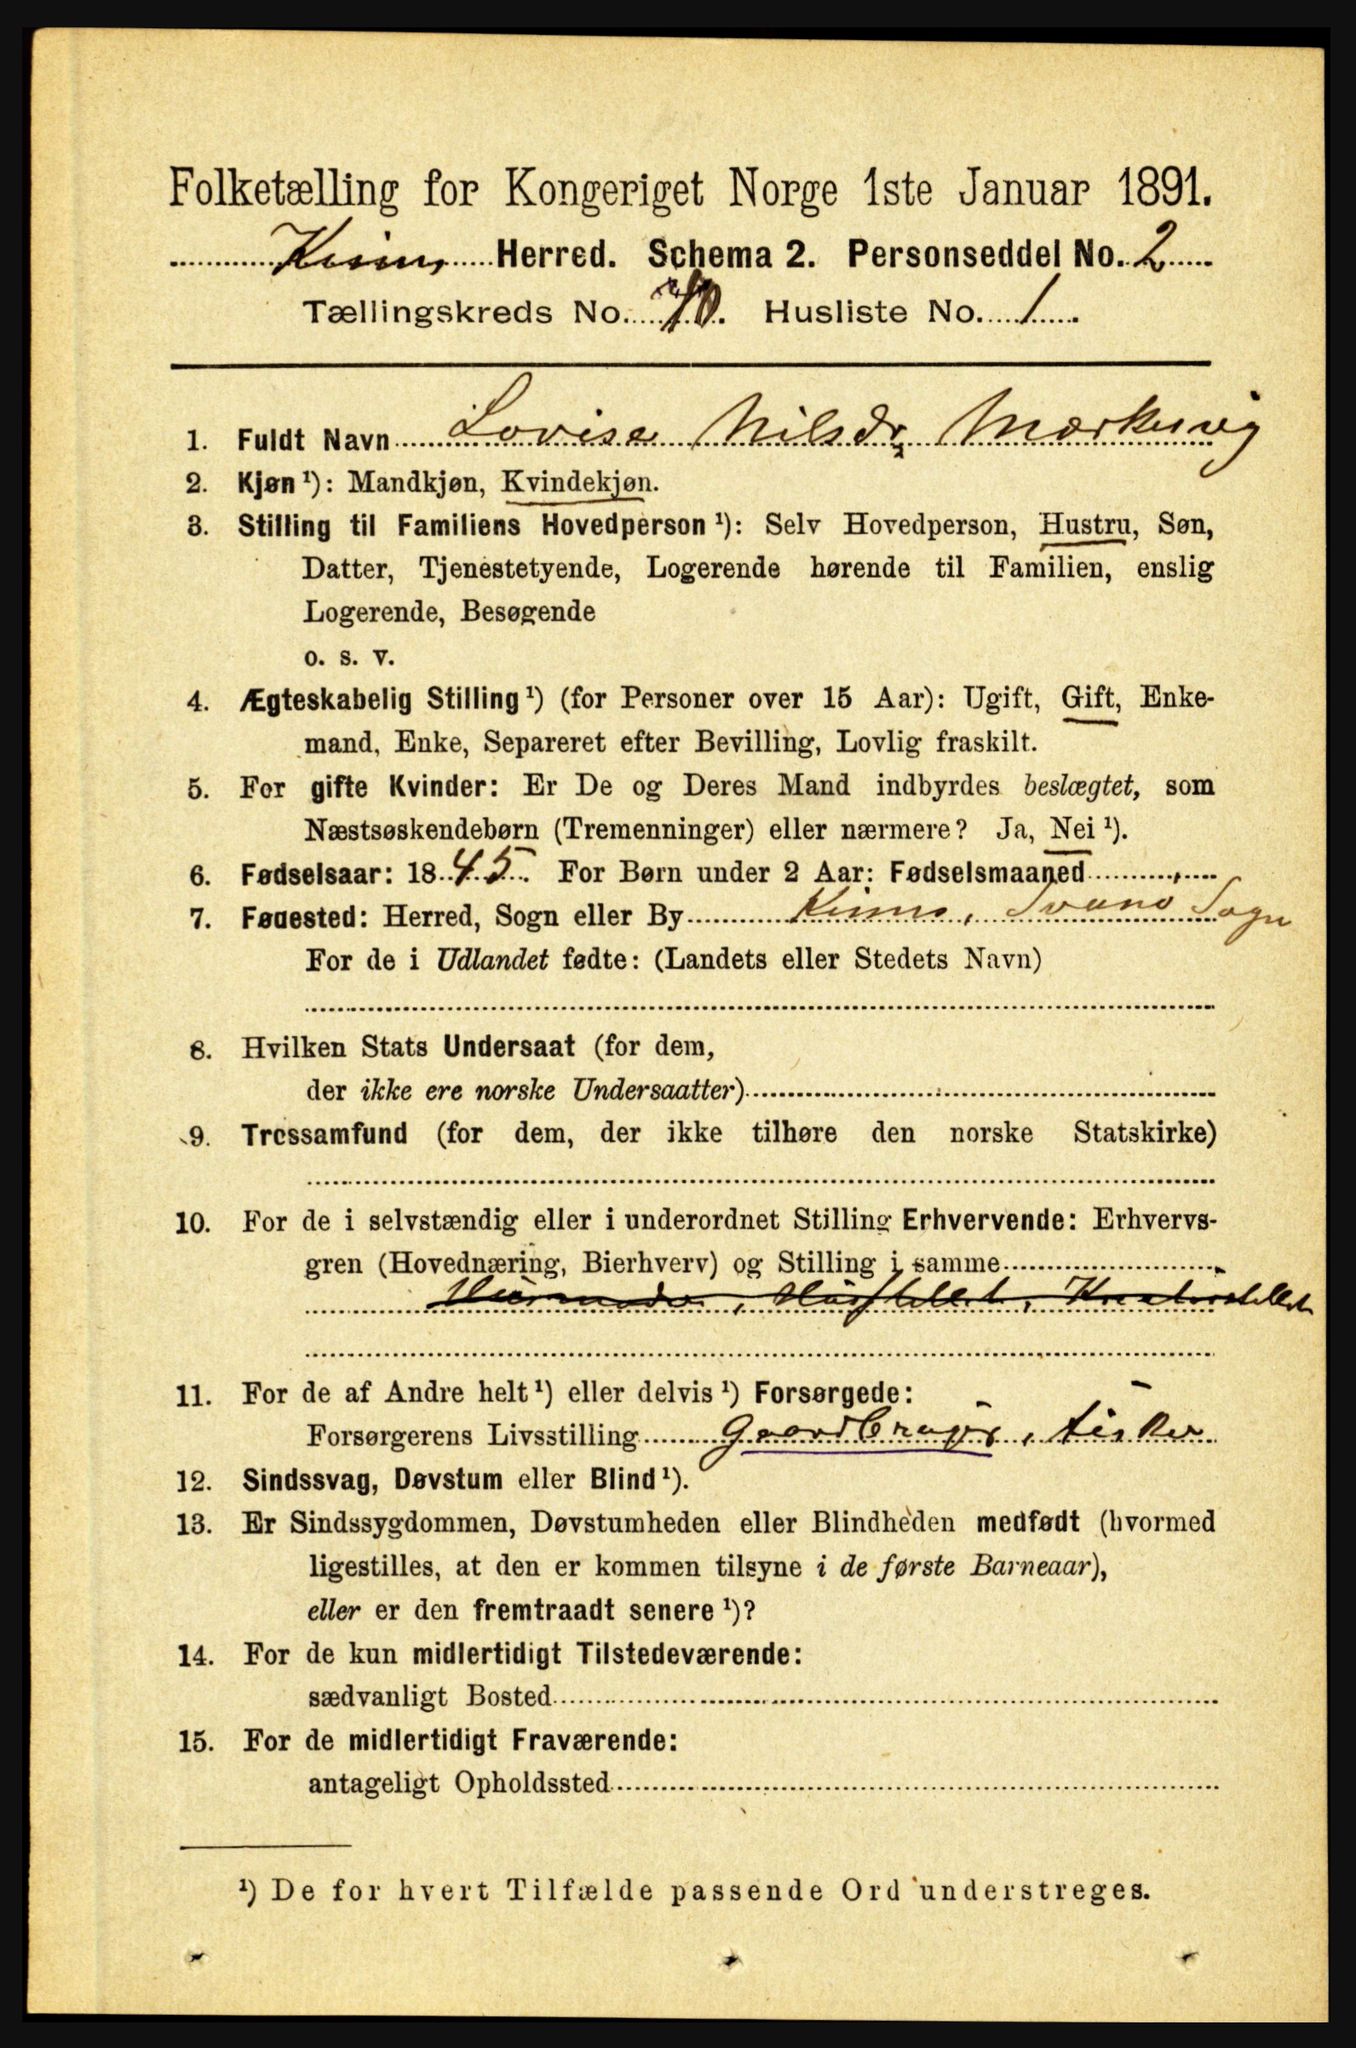 Folketælling for Kongeriget Norge 1ste Januar 1891.
Kinn Herred. Schema 2. Personseddel No. 2
Tællingskreds No. 10. Husliste No. 1
1. Fuldt Navn Lovise Nilsdr Markesvig
2. Kjøn ¹): Mandkjøn, Kvindekjøn.
3. Stilling til Familiens Hovedperson ¹): Selv Hovedperson, Hustru, Søn,
Datter, Tjenestetyende, Logerende hørende til Familien, enslig
Logerende, Besøgende
o. s. v.
4. Ægteskabelig Stilling ¹) (for Personer over 15 Aar): Ugift, Gift, Enke-
mand, Enke, Separeret efter Bevilling, Lovlig fraskilt.
5. For gifte Kvinder: Er De og Deres Mand indbyrdes beslægtet, som
Næstsøskendebørn (Tremenninger) eller nærmere? Ja, Nei ¹).
6. Fødselsaar: 1845. For Børn under 2 Aar: Fødselsmaaned
7. Føuested: Herred, Sogn eller By Kinn, Svanø Sogn
For de i Udlandet fødte: (Landets eller Stedets Navn)
8. Hvilken Stats Undersaat (for dem,
der ikke ere norske Undersaatter)
9. Trossamfund (for dem, der ikke tilhøre den norske Statskirke)
10. For de i selvstændig eller i underordnet Stilling Erhvervende: Erhvervs-
gren (Hovednæring, Bierhverv) og Stilling i samme
Husmoder, Husstellet, Kreaturstellet
11. For de af Andre helt ¹) eller delvis ¹) Forsørgede:
Forsørgerens Livsstilling Gaardbruger, fisker
12. Sindssvag, Døvstum eller Blind ¹).
13. Er Sindssygdommen, Døvstumheden eller Blindheden medfødt (hvormed
ligestilles, at den er kommen tilsyne i de første Barneaar),
eller er den fremtraadt senere ¹)?
14. For de kun midlertidigt Tilstedeværende:
sædvanligt Bosted
15. For de midlertidigt Fraværende:
antageligt Opholdssted
¹) De for hvert Tilfælde passende Ord understreges.